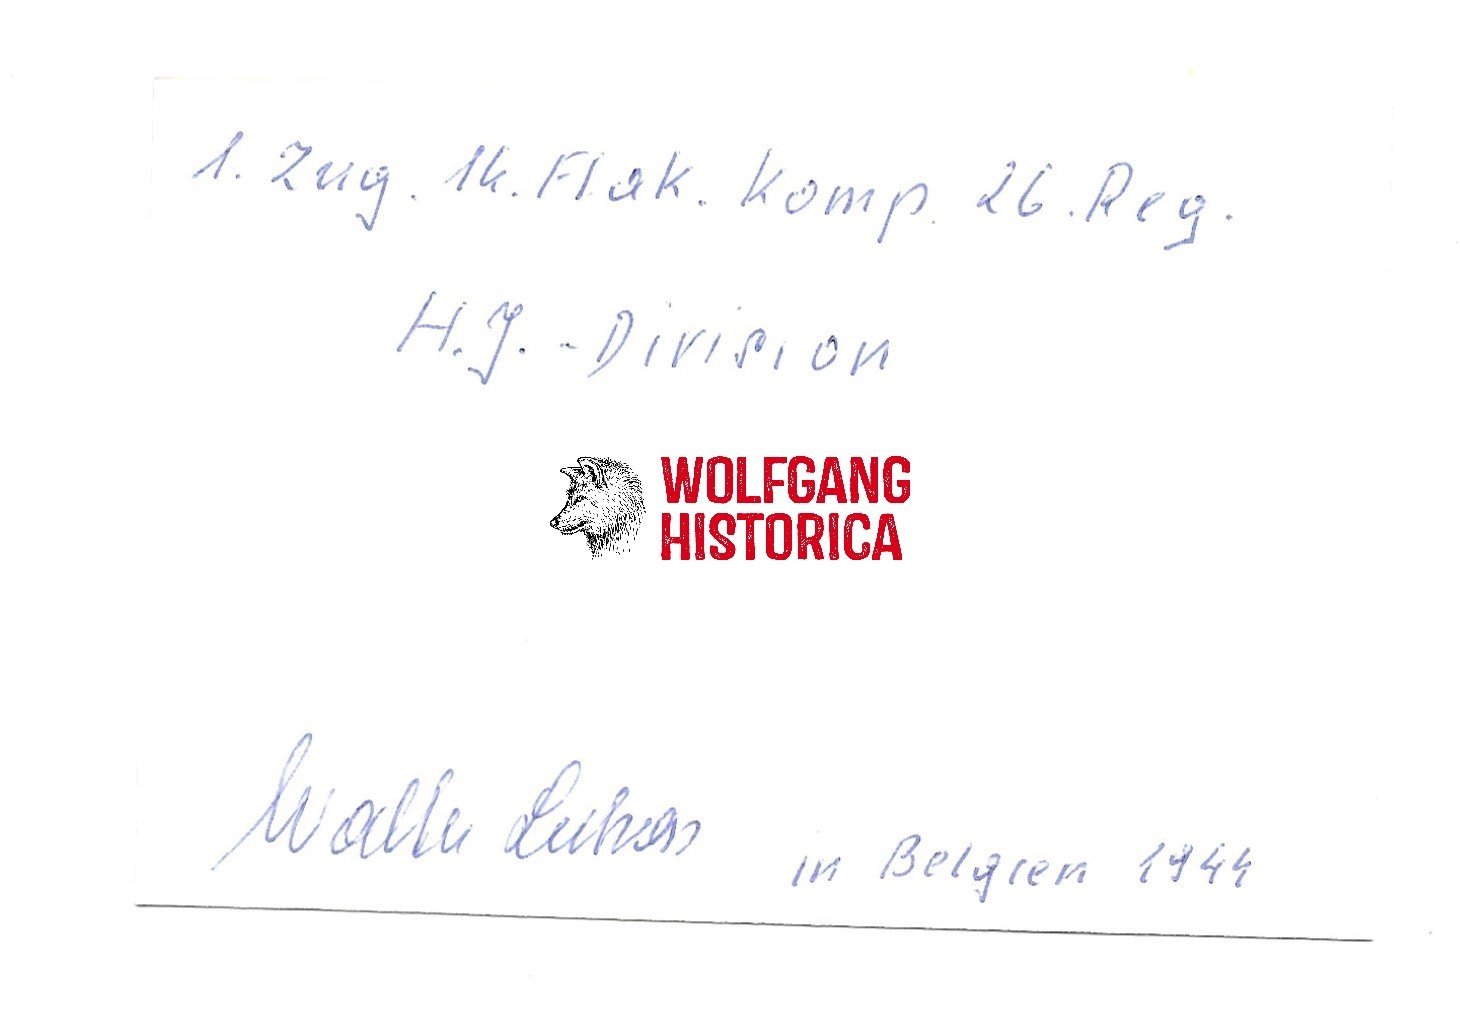 1. Zug. 14. Flak. Komp. 26. Reg.
H.J.-Division
WOLFGANG
HISTORICA
Walter Lukas in Belgien 1944